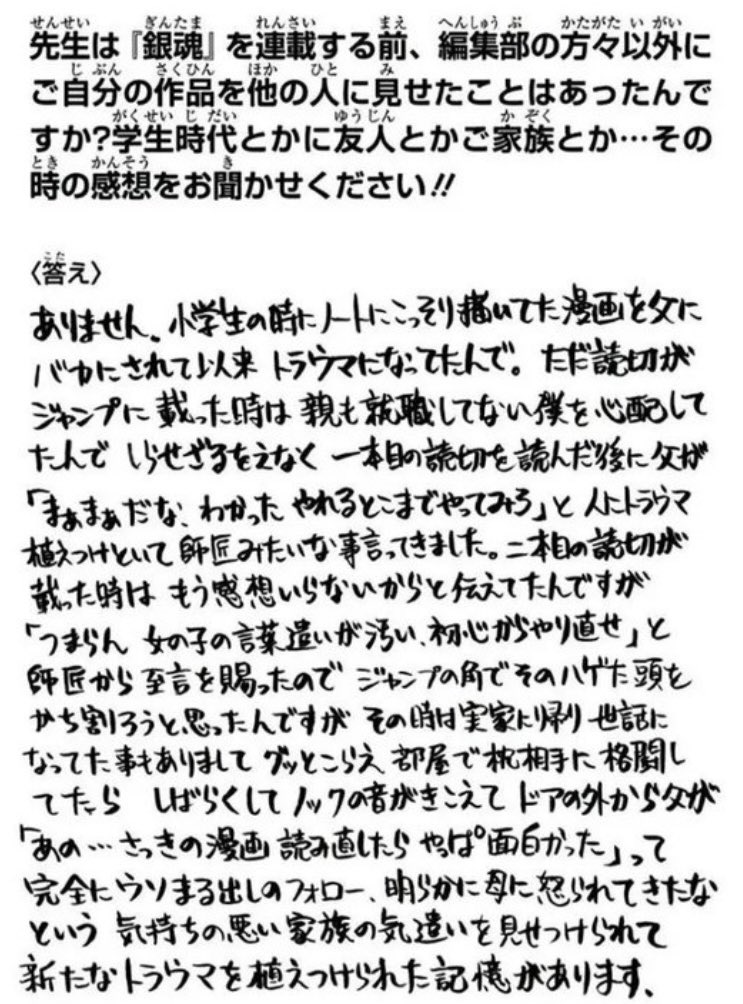 先生は『銀魂』を連載する前、編集部の方々以外に
ご自分の作品を他の人に見せたことはあったんで
すか?学生時代とかに友人とかご家族とか…その
時の感想をお聞かせください!!
〈答え〉
ありません。小学生の時にノートにこっそり描いてた漫画を父に
バカにされて以来 トラウマになってたんで。ただ読切が
ジャンプに載った時は親も就職してない僕を心配して
たんで しらせざるをえなく 一本目の読切を読んだ後に父が
「まぁまぁだな、わかった やれるとこまでやってみろ」と 人にトラウマ
植えつけといて 師匠みたいな事言ってきました。二本目の読切が
載った時は もう感想いらないからと伝えてたんですが
「つまらん 女の子の言葉遣いが汚い、初心からやり直せ」と
師匠から 至言を賜ったので ジャンプの角でそのハゲた頭を
かち割ろうと思ったんですが その時は実家に帰り 世話に
なってた事もありまして グッとこらえ 部屋で枕相手に格闘し
てたら しばらくして ノックの音がきこえて ドアの外から父が
「あの…さっきの漫画 読み直したら やっぱ面白かった」って
完全にウソまる出しのフォロー、明らかに母に怒られてきたな
という 気持ちの悪い家族の気遣いを見せつけられて
新たなトラウマを植えつけられた記憶があります。